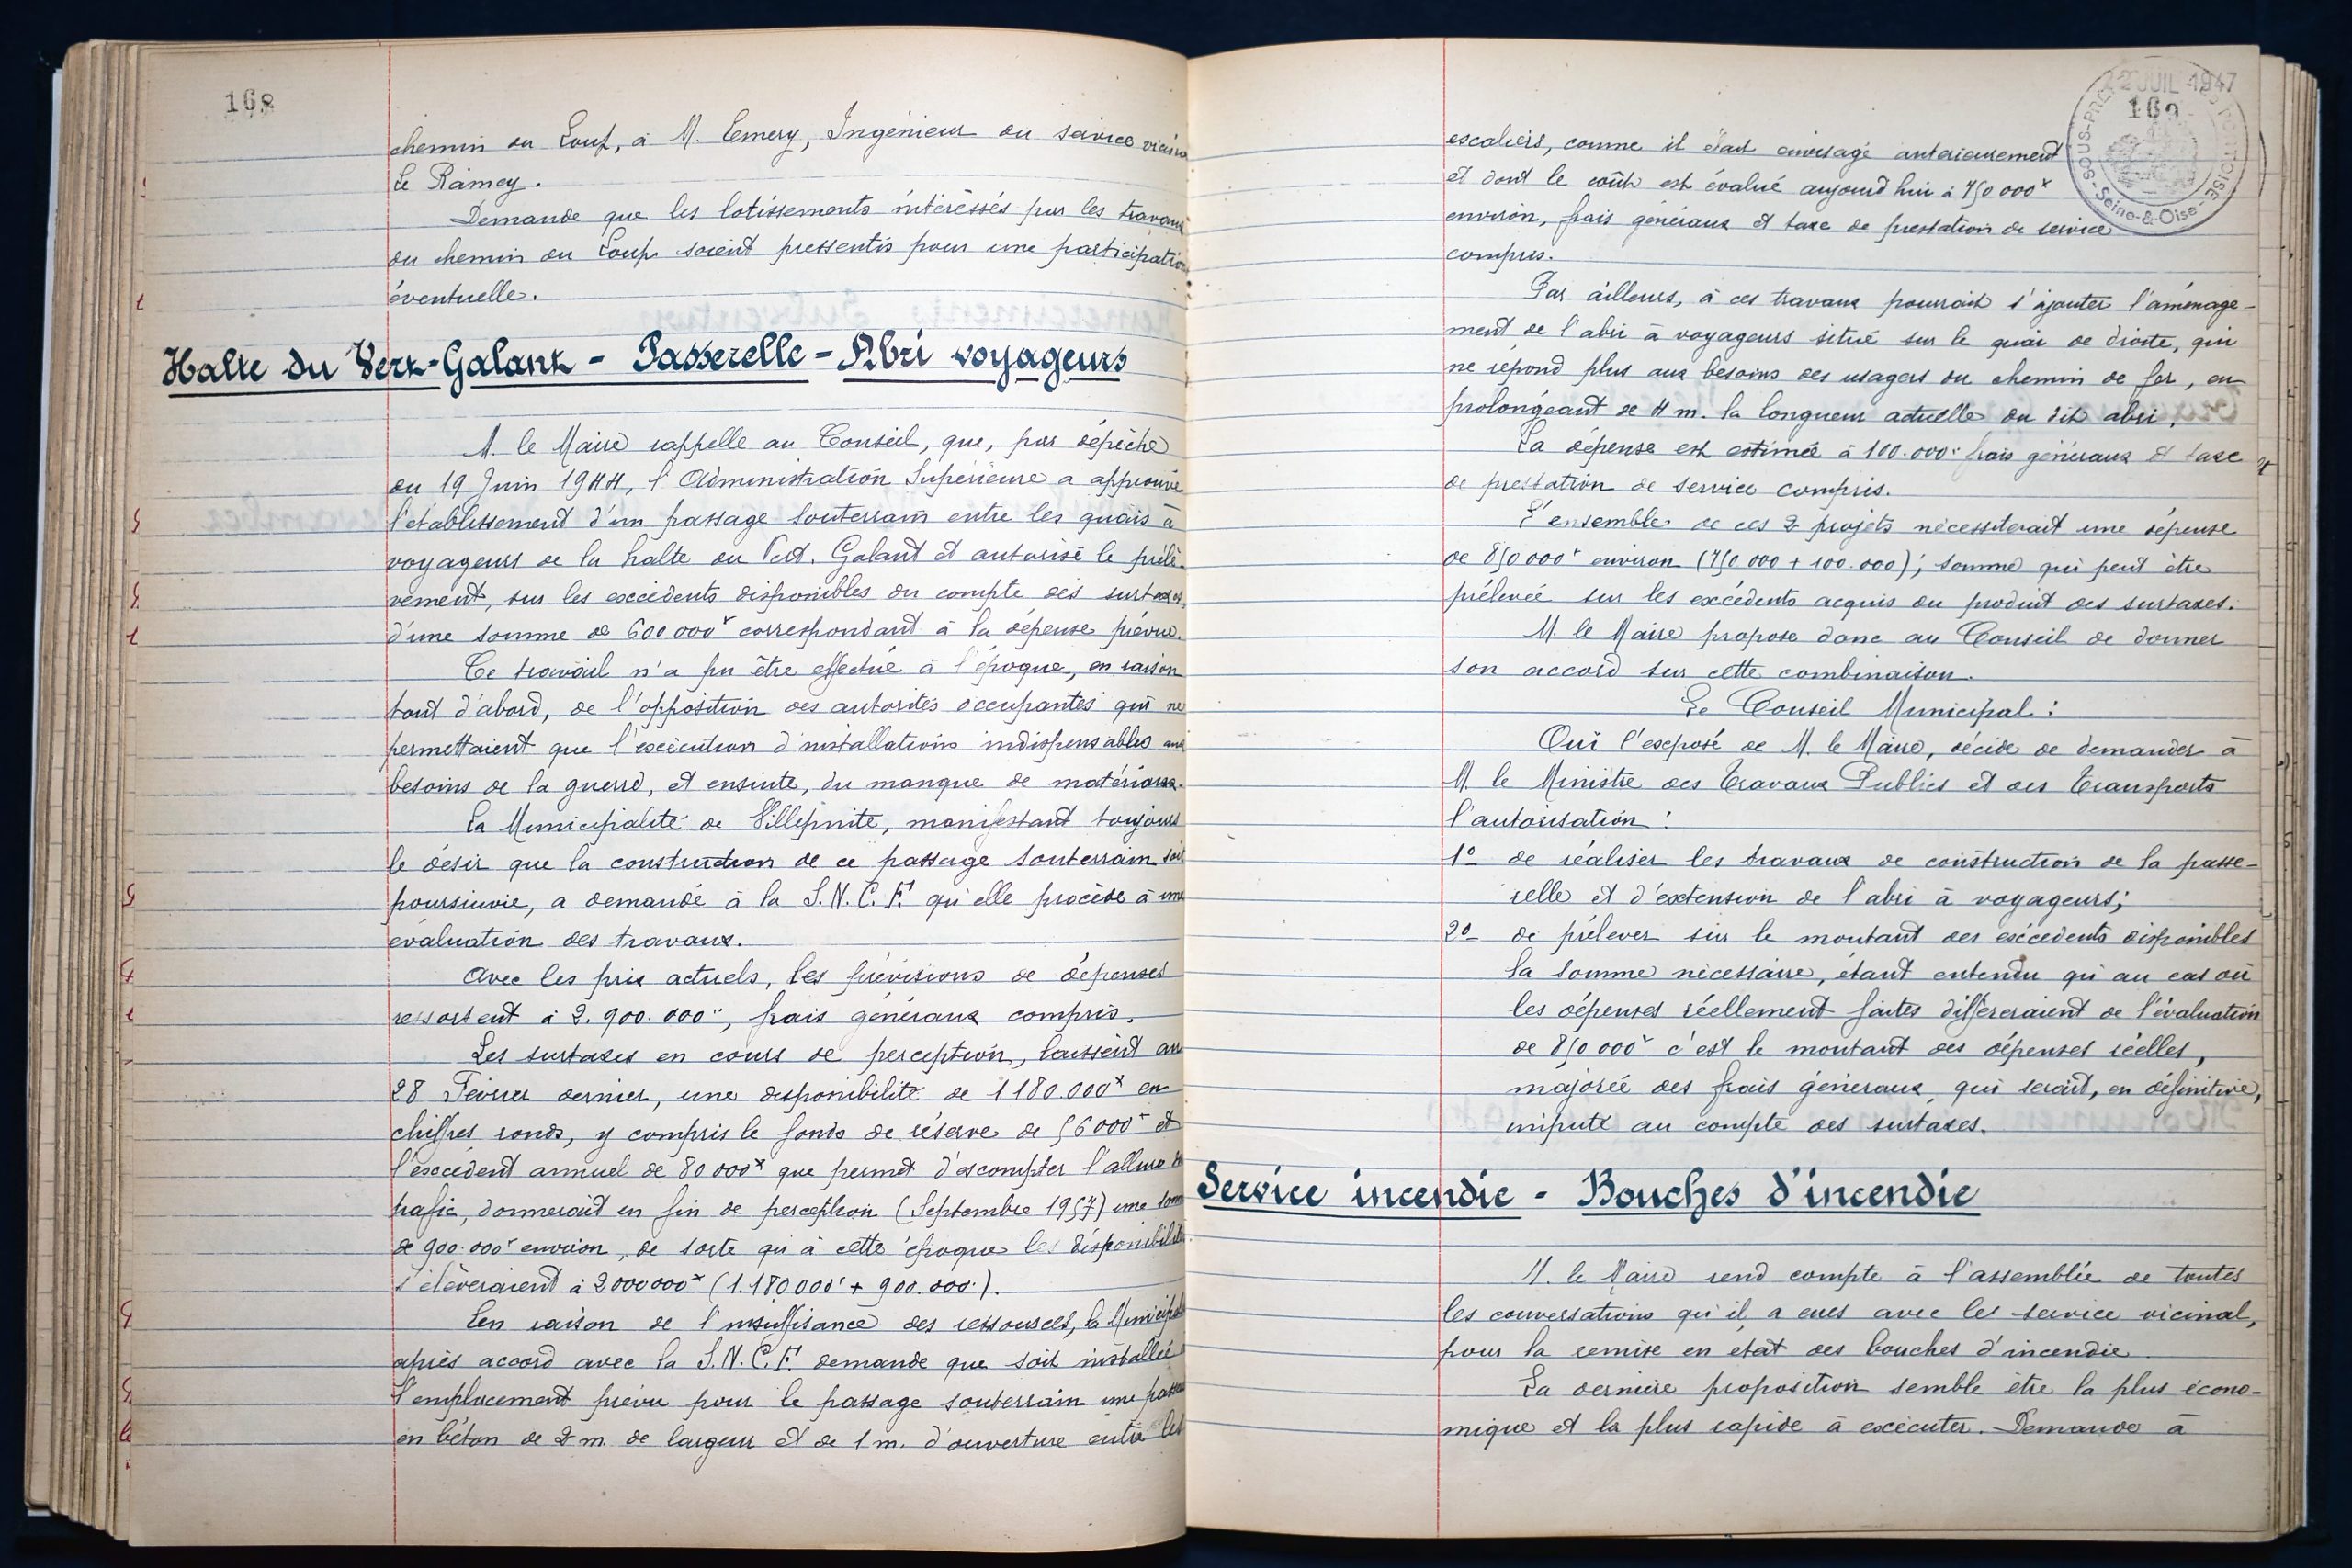 168
chemin du Loup, à M. Emery, Ingénieur du service vicinal
Le Raincy.
Demande que les lotissements intéressés par les travaux
du chemin du Loup soient pressentis pour une participation
éventuelle.
Halte du Vert-Galant - Passerelle - Abri voyageurs
M. le Maire rappelle au Conseil, que, par dépêche
du 19 Juin 1944, l'Administration Supérieure a approuvé
l'établissement d'un passage souterrain entre les quais à
voyageurs de la halte du Vert. Galant et autorisé le prélè-
vement, sur les excédents disponibles du compte des surtaxes,
d'une somme de 600 000f correspondant à la dépense prévue.
Ce travail n'a pu être effectué à l'époque, en raison
tout d'abord, de l'opposition des autorités occupantes qui ne
permettaient que l'exécution d'installations indispensables aux
besoins de la guerre, et ensuite, du manque de matériaux.
La Municipalité de Villepinte, manifestant toujours
le désir que la construction de ce passage souterrain soit
poursuivie, a demandé à la S.N.C.F. qu'elle procède à une
évaluation des travaux.
Avec les prix actuels, les prévisions de dépenses
ressortent à 2.900.000", frais généraux compris.
Les surtaxes en cours de perception, laissent au
28 Février dernier, une disponibilité de 1 180.000f en
chiffres ronds, y compris le fonds de réserve de 56 000f et
l'excédent annuel de 80 000f que permet d'escompter l'allure du
trafic, donnerait en fin de perception (Septembre 1957) une som
de 900.000f environ, de sorte qu'à cette époque les disponibilités
s'élèveraient à 2 000 000f (1.180 000f + 900.000f).
En raison de l'insuffisance des ressources, la Municipal
après accord avec la S.N.C.F. demande que soit installée
l'emplacement prévu pour le passage souterrain une passe
en béton de 2 m. de largeur et de 1 m. d'ouverture entre les
2 JUIL 1947
169
SOUS-PRÉ PONTOISE
Seine-&-Oise
escaliers, comme il était envisagé antérieurement
et dont le coût est évalué aujourd'hui à 750 000f
environ, frais généraux et taxe de prestation de service
compris.
Par ailleurs, à ces travaux pourrait s'ajouter l'aménage-
ment de l'abri à voyageurs situé sur le quai de droite, qui
ne répond plus aux besoins des usagers du chemin de fer, en
prolongeant de 4 m. la longueur actuelle du dit abri.
La dépense est estimée à 100.000" frais généraux et taxe
de prestation de service compris.
L'ensemble de ces 2 projets nécessiterait une dépense
de 850 000f environ (750 000 + 100.000); somme qui peut être
prélevée sur les excédents acquis du produit des surtaxes.
M. le Maire propose donc au Conseil de donner
son accord sur cette combinaison.
Le Conseil Municipal :
Ouï l'exposé de M. le Maire, décide de demander à
M. le Ministre des Travaux Publics et des Transports
l'autorisation :
1º de réaliser les travaux de construction de la passe-
relle et d'extension de l'abri à voyageurs;
2º de prélever sur le montant des excédents disponibles
la somme nécessaire, étant entendu qu'au cas où
les dépenses réellement faites différeraient de l'évaluation
de 850 000f c'est le montant des dépenses réelles,
majorée des frais généraux, qui serait, en définitive,
imputé au compte des surtaxes.
Service incendie - Bouches d'incendie
M. le Maire rend compte à l'assemblée de toutes
les conversations qu'il a eues avec les service vicinal,
pour la remise en état des bouches d'incendie.
La dernière proposition semble être la plus écono-
mique et la plus rapide à exécuter. Demande à